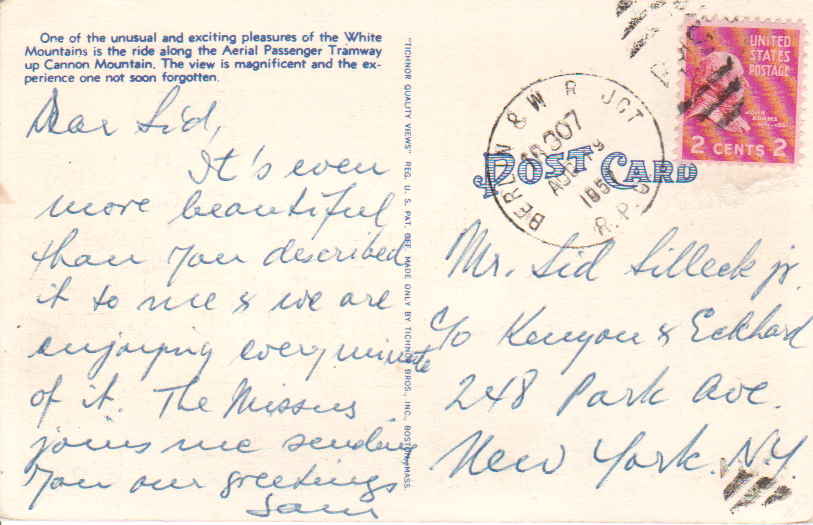 One of the unusual and exciting pleasures of the White
Mountains is the ride along the Aerial Passenger Tramway
up Cannon Mountain. The view is magnificent and the ex-
perience one not soon forgotten.
Dear Sid,
It's even
more beautiful
than you described
it to me & we are
enjoying every minute
of it. The Missus
joins me sending
you our greetings
Sam
"TICHNOR QUALITY VIEWS" REG. U. S. PAT. OFF. MADE ONLY BY TICHNOR BROS., INC., BOSTON, MASS.
POST CARD
BERLIN & W R JCT
R.P.O
307
AUG
UNITED
STATES
POSTAGE
JOHN
ADAMS
2 CENTS 2
Mr. Sid Silleck jr.
c/o Kenyon & Eckhard
248 Park Ave.
New York. N.Y.